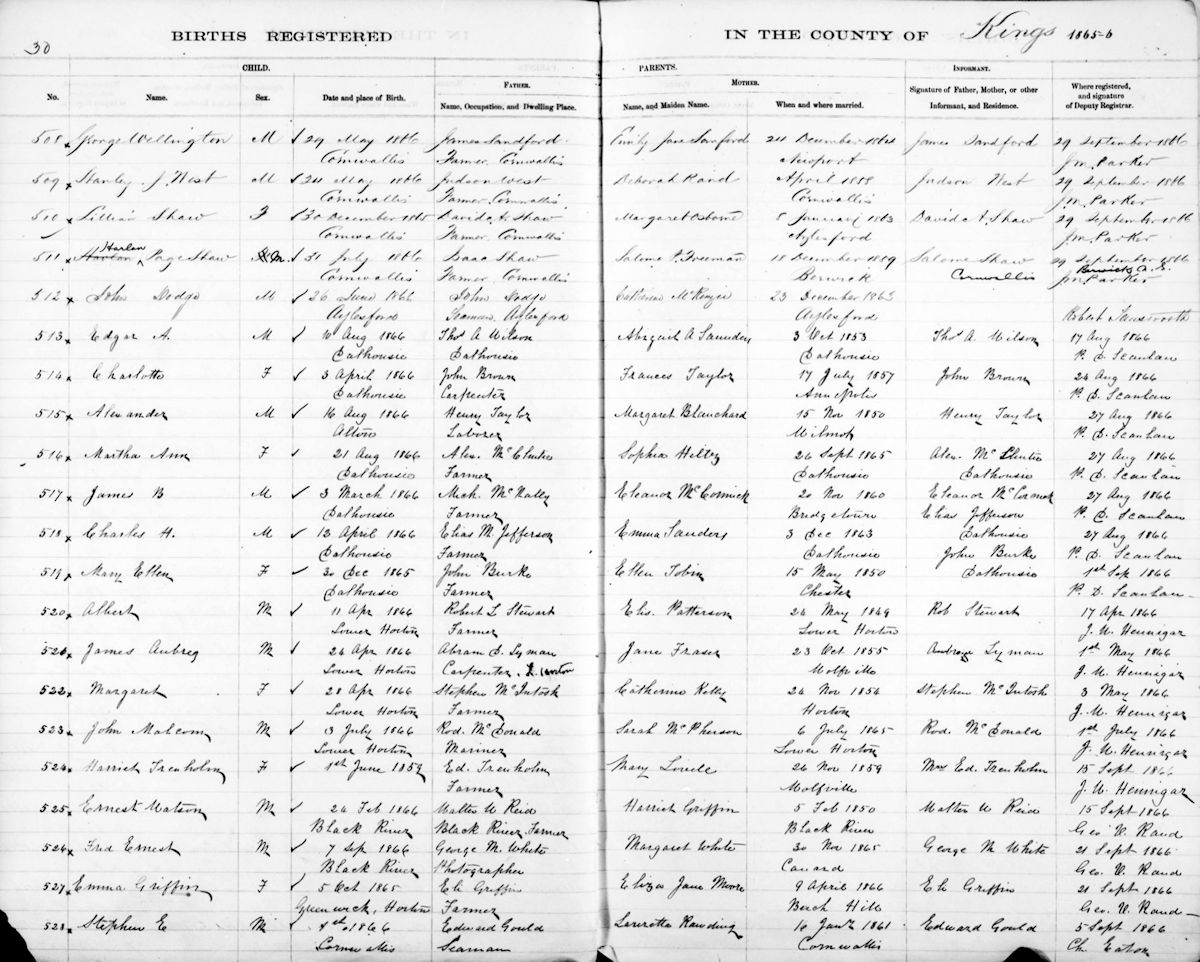 30
BIRTHS REGISTERED
IN THE COUNTY OF Kings 1865-6
CHILD.
PARENTS.
No.
Name.
Sex.
Date and place of Birth.
Father.
Name, Occupation, and Dwelling Place.
Mother.
Name, and Maiden Name.
When and where married.
Informant.
Signature of Father, Mother, or other
Informant, and Residence.
Where registered,
and signature
of Deputy Registrar.
508 George Wellington M 29 May 1866 James Sandford Emily Jane Sanford 24 December 1864 James Sandford 29 September 1866
Cornwallis Farmer Cornwallis Newport J.M. Parker
509 Stanley J. West M 24 May 1866 Judson West Deborah Rand April 1858 Judson West 29 September 1866
Cornwallis Farmer Cornwallis Cornwallis J.M. Parker
510 Lillian Shaw F 30 December 1865 David A. Shaw Margaret Osborne 5 January 1863 David A. Shaw 29 September 1866
Cornwallis Farmer Cornwallis Aylesford J.M. Parker
511 Harlan Page Shaw M 31 July 1866 Isaac Shaw Salome P. Freeman 18 December 1849 Salome Shaw 29 September 1866
Cornwallis Farmer Cornwallis Berwick Cornwallis J.M. Parker
512 John Dodge M 26 June 1866 John Dodge Catherine McKenzie 23 December 1863
Aylesford Seaman Aylesford Aylesford Robert Farnsworth
513 Edgar A. M 10 Aug 1866 Thos A Wilson Abigail A Saunders 3 Oct 1853 Thos A. Wilson 17 Aug 1866
Dalhousie Dalhousie Dalhousie P. D. Scanlan
514 Charlotte F 3 April 1866 John Brown Frances Taylor 17 July 1857 John Brown 24 Aug 1866
Dalhousie Carpenter Annapolis P. D. Scanlan
515 Alexander M 16 Aug 1866 Henry Taylor Margaret Blanchard 15 Nov 1850 Henry Taylor 27 Aug 1866
Alton Laborer Wilmot P. D. Scanlan
516 Martha Ann F 21 Aug 1866 Alex. McClintic Sophia Hiltz 26 Sept 1865 Alex. McClintic 27 Aug 1866
Dalhousie Farmer Dalhousie Dalhousie P. D. Scanlan
517 James B M 3 March 1866 Mich. McNally Eleanor McCormick 20 Nov 1860 Eleanor McCormick 27 Aug 1866
Dalhousie Farmer Bridgetown Elias Jefferson P. D. Scanlan
518 Charles H. M 13 April 1866 Elias M. Jefferson Emma Sanders 3 Dec 1863 Dalhousie 27 Aug 1866
Dalhousie Farmer Dalhousie John Burke P. D. Scanlan
519 Mary Ellen F 30 Dec 1865 John Burke Ellen Tobin 15 May 1850 Dalhousie 1st Sep 1866
Dalhousie Farmer Chester P. D. Scanlan
520 Albert M 11 Apr 1866 Robert L Stewart Elis. Patterson 24 May 1849 Rob Stewart 17 Apr 1866
Lower Horton Farmer Lower Horton J. W. Hennigar
521 James Aubrey M 24 Apr 1866 Abram D. Lyman Jane Fraser 23 Oct 1855 Lyman 1st May 1866
Lower Horton Carpenter, L Horton Wolfville J. W. Hennigar
522 Margaret F 28 Apr 1866 Stephen McIntosh Catherine Kelly 24 Nov 1854 Stephen McIntosh 3 May 1866
Lower Horton Farmer Horton J. W. Hennigar
523 John Malcom M 3 July 1866 Rod. McDonald Sarah McPherson 6 July 1865 Rod. McDonald 1st July 1866
Lower Horton Mariner Lower Horton J. W. Hennigar
524 Harriet Trenholm F 1st June 1859 Ed. Trenholm Mary 26 Nov 1859 Mrs Ed. Trenholm 15 Sept 1866
Farmer Wolfville J. W. Hennigar
525 Ernest Watson M 24 Feb 1866 Walter W Reid Harriet Griffin 5 Feb 1850 Walter W Reid 15 Sept 1866
Black River Black River Farmer Black River Geo V. Rand
526 Fred Ernest M 7 Sep 1866 George M. White Margaret White 30 Nov 1865 George M White 21 Sept 1866
Black River Photographer Canard Geo. V. Rand
527 Emma Griffin F 5 Oct 1865 Eli Griffin Eliza Jane Moore 9 April 1866 Eli Griffin 21 Sept 1866
Greenwick, Horton Farmer Beach Hill Geo. V. Rand
528 Stephen E M 1866 Edward Gould Rawding 1861 Edward Gould 5 Sept 1866
Cornwallis Seaman Cornwallis Ch. Eaton